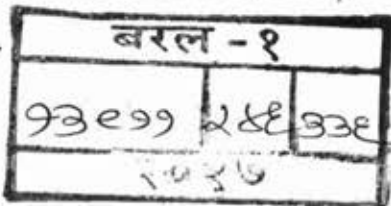 बरल - १
१३९११ २४६ ३३६
२०१७